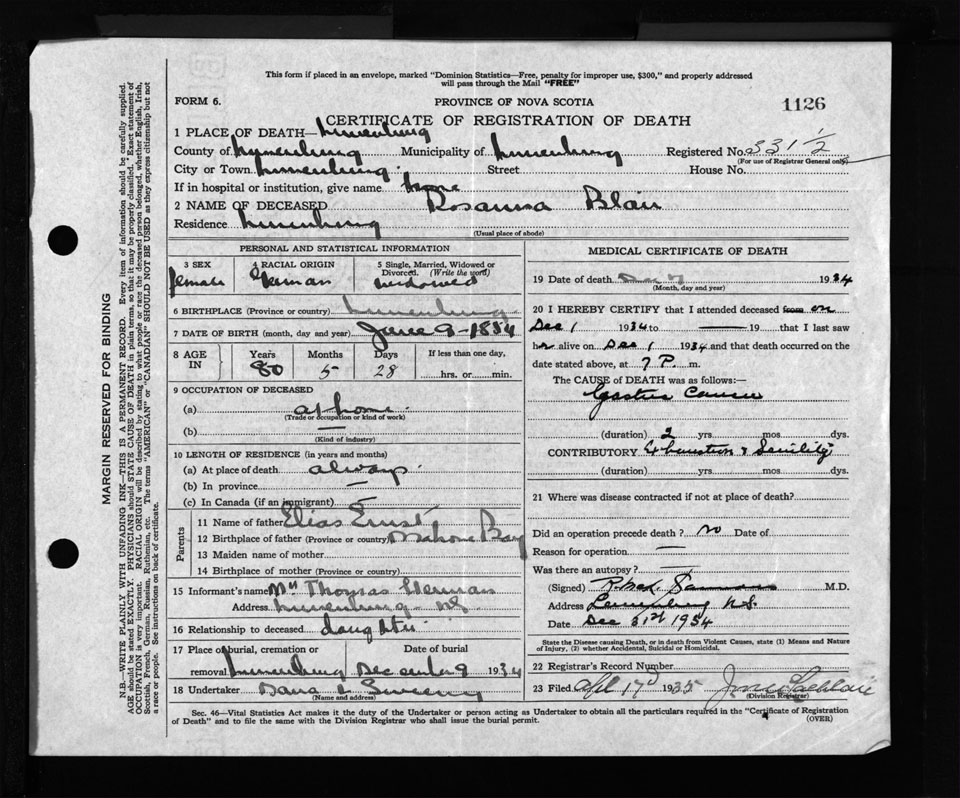 This form if placed in an envelope, marked "Dominion Statistics—Free, penalty for improper use, $300," and properly addressed
will pass through the Mail "FREE"
FORM 6. PROVINCE OF NOVA SCOTIA 1126
CERTIFICATE OF REGISTRATION OF DEATH
1 PLACE OF DEATH— Lunenburg
County of Lunenburg Municipality of Lunenburg Registered No. 331½
(For use of Registrar General only)
City or Town Lunenburg Street House No.
If in hospital or institution, give name home
2 NAME OF DECEASED Rosanna Blair
Residence Lunenburg
(Usual place of abode)
PERSONAL AND STATISTICAL INFORMATION
3 SEX 4 RACIAL ORIGIN 5 Single, Married, Widowed or Divorced. (Write the word)
female German widowed
6 BIRTHPLACE (Province or country) Lunenburg
7 DATE OF BIRTH (month, day and year) June 9-1854
8 AGE IN Years Months Days If less than one day,
80 5 28 hrs. or min.
9 OCCUPATION OF DECEASED
(a) at home
(Trade or occupation or kind of work)
(b) —
(Kind of industry)
10 LENGTH OF RESIDENCE (in years and months)
(a) At place of death always
(b) In province —
(c) In Canada (if an immigrant) —
Parents
11 Name of father Elias Ernst
12 Birthplace of father (Province or country) Mahone Bay
13 Maiden name of mother
14 Birthplace of mother (Province or country)
15 Informant's name Mrs Thomas Herman
Address Lunenburg - NS
16 Relationship to deceased daughter
17 Place of burial, cremation or removal Date of burial
Lunenburg December 9 1934
18 Undertaker Dana L Sweeny
(Name and address)
MEDICAL CERTIFICATE OF DEATH
19 Date of death Dec 7 1934
(Month, day and year)
20 I HEREBY CERTIFY that I attended deceased from on
Dec 1 1934 to —— 19 that I last saw
her alive on Dec 1 1934 and that death occurred on the
date stated above, at 7 P. m.
The CAUSE of DEATH was as follows:—
Gastric Cancer
(duration) 2 yrs. mos. dys.
CONTRIBUTORY Exhaustion & Senility
(duration) yrs. mos. dys.
21 Where was disease contracted if not at place of death?
Did an operation precede death? no Date of
Reason for operation —
Was there an autopsy? —
(Signed) M.D.
Address Lunenburg N.S.
Date Dec 31st 1934
State the Disease causing Death, or in death from Violent Causes, state (1) Means and Nature
of Injury, (2) whether Accidental, Suicidal or Homicidal.
22 Registrar's Record Number
23 Filed Apl 17 1935
(Division Registrar)
Sec. 46—Vital Statistics Act makes it the duty of the Undertaker or person acting as Undertaker to obtain all the particulars required in the "Certificate of Registration
of Death" and to file the same with the Division Registrar who shall issue the burial permit. (OVER)
MARGIN RESERVED FOR BINDING
N.B.—WRITE PLAINLY WITH UNFADING INK—THIS IS A PERMANENT RECORD. Every item of information should be carefully supplied.
AGE should be stated EXACTLY. PHYSICIANS should STATE CAUSE OF DEATH in plain terms, so that it may be properly classified. Exact statement of
OCCUPATION is very important. RACIAL ORIGIN will be described by stating to what people or race the deceased person belonged, whether English, Irish,
Scottish, French, German, Russian, Ruthenian, etc. The terms "AMERICAN" or "CANADIAN" SHOULD NOT BE USED as they express citizenship but not
a race or people. See instructions on back of certificate.